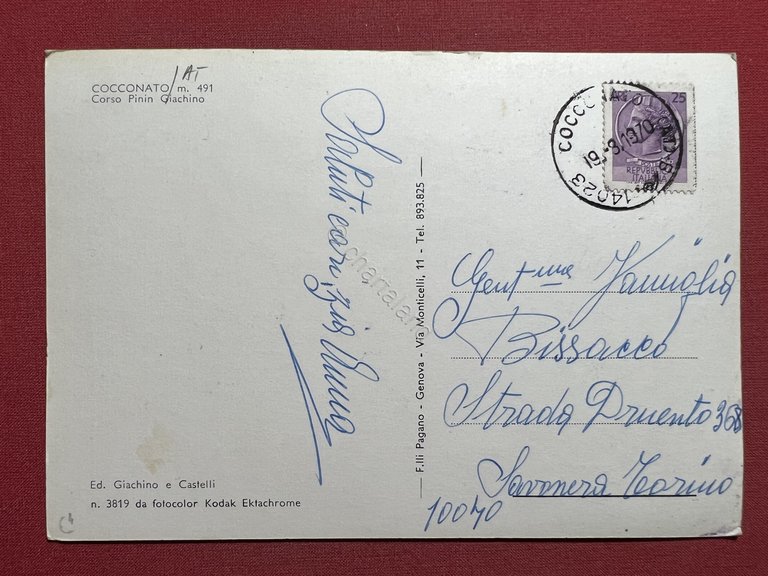 COCCONATO m. 491
AT
Corso Pinin Giachino
Saluti cari, zia Anna
Ed. Giachino e Castelli
n. 3819 da fotocolor Kodak Ektachrome
F.lli Pagano - Genova - Via Monticelli, 11 - Tel. 893.825
25
COCCONATO (AT) B
19-8-1970
14023
Gent.me Famiglia
Bissacco
Strada Druento 368
Savonera Torino
10040